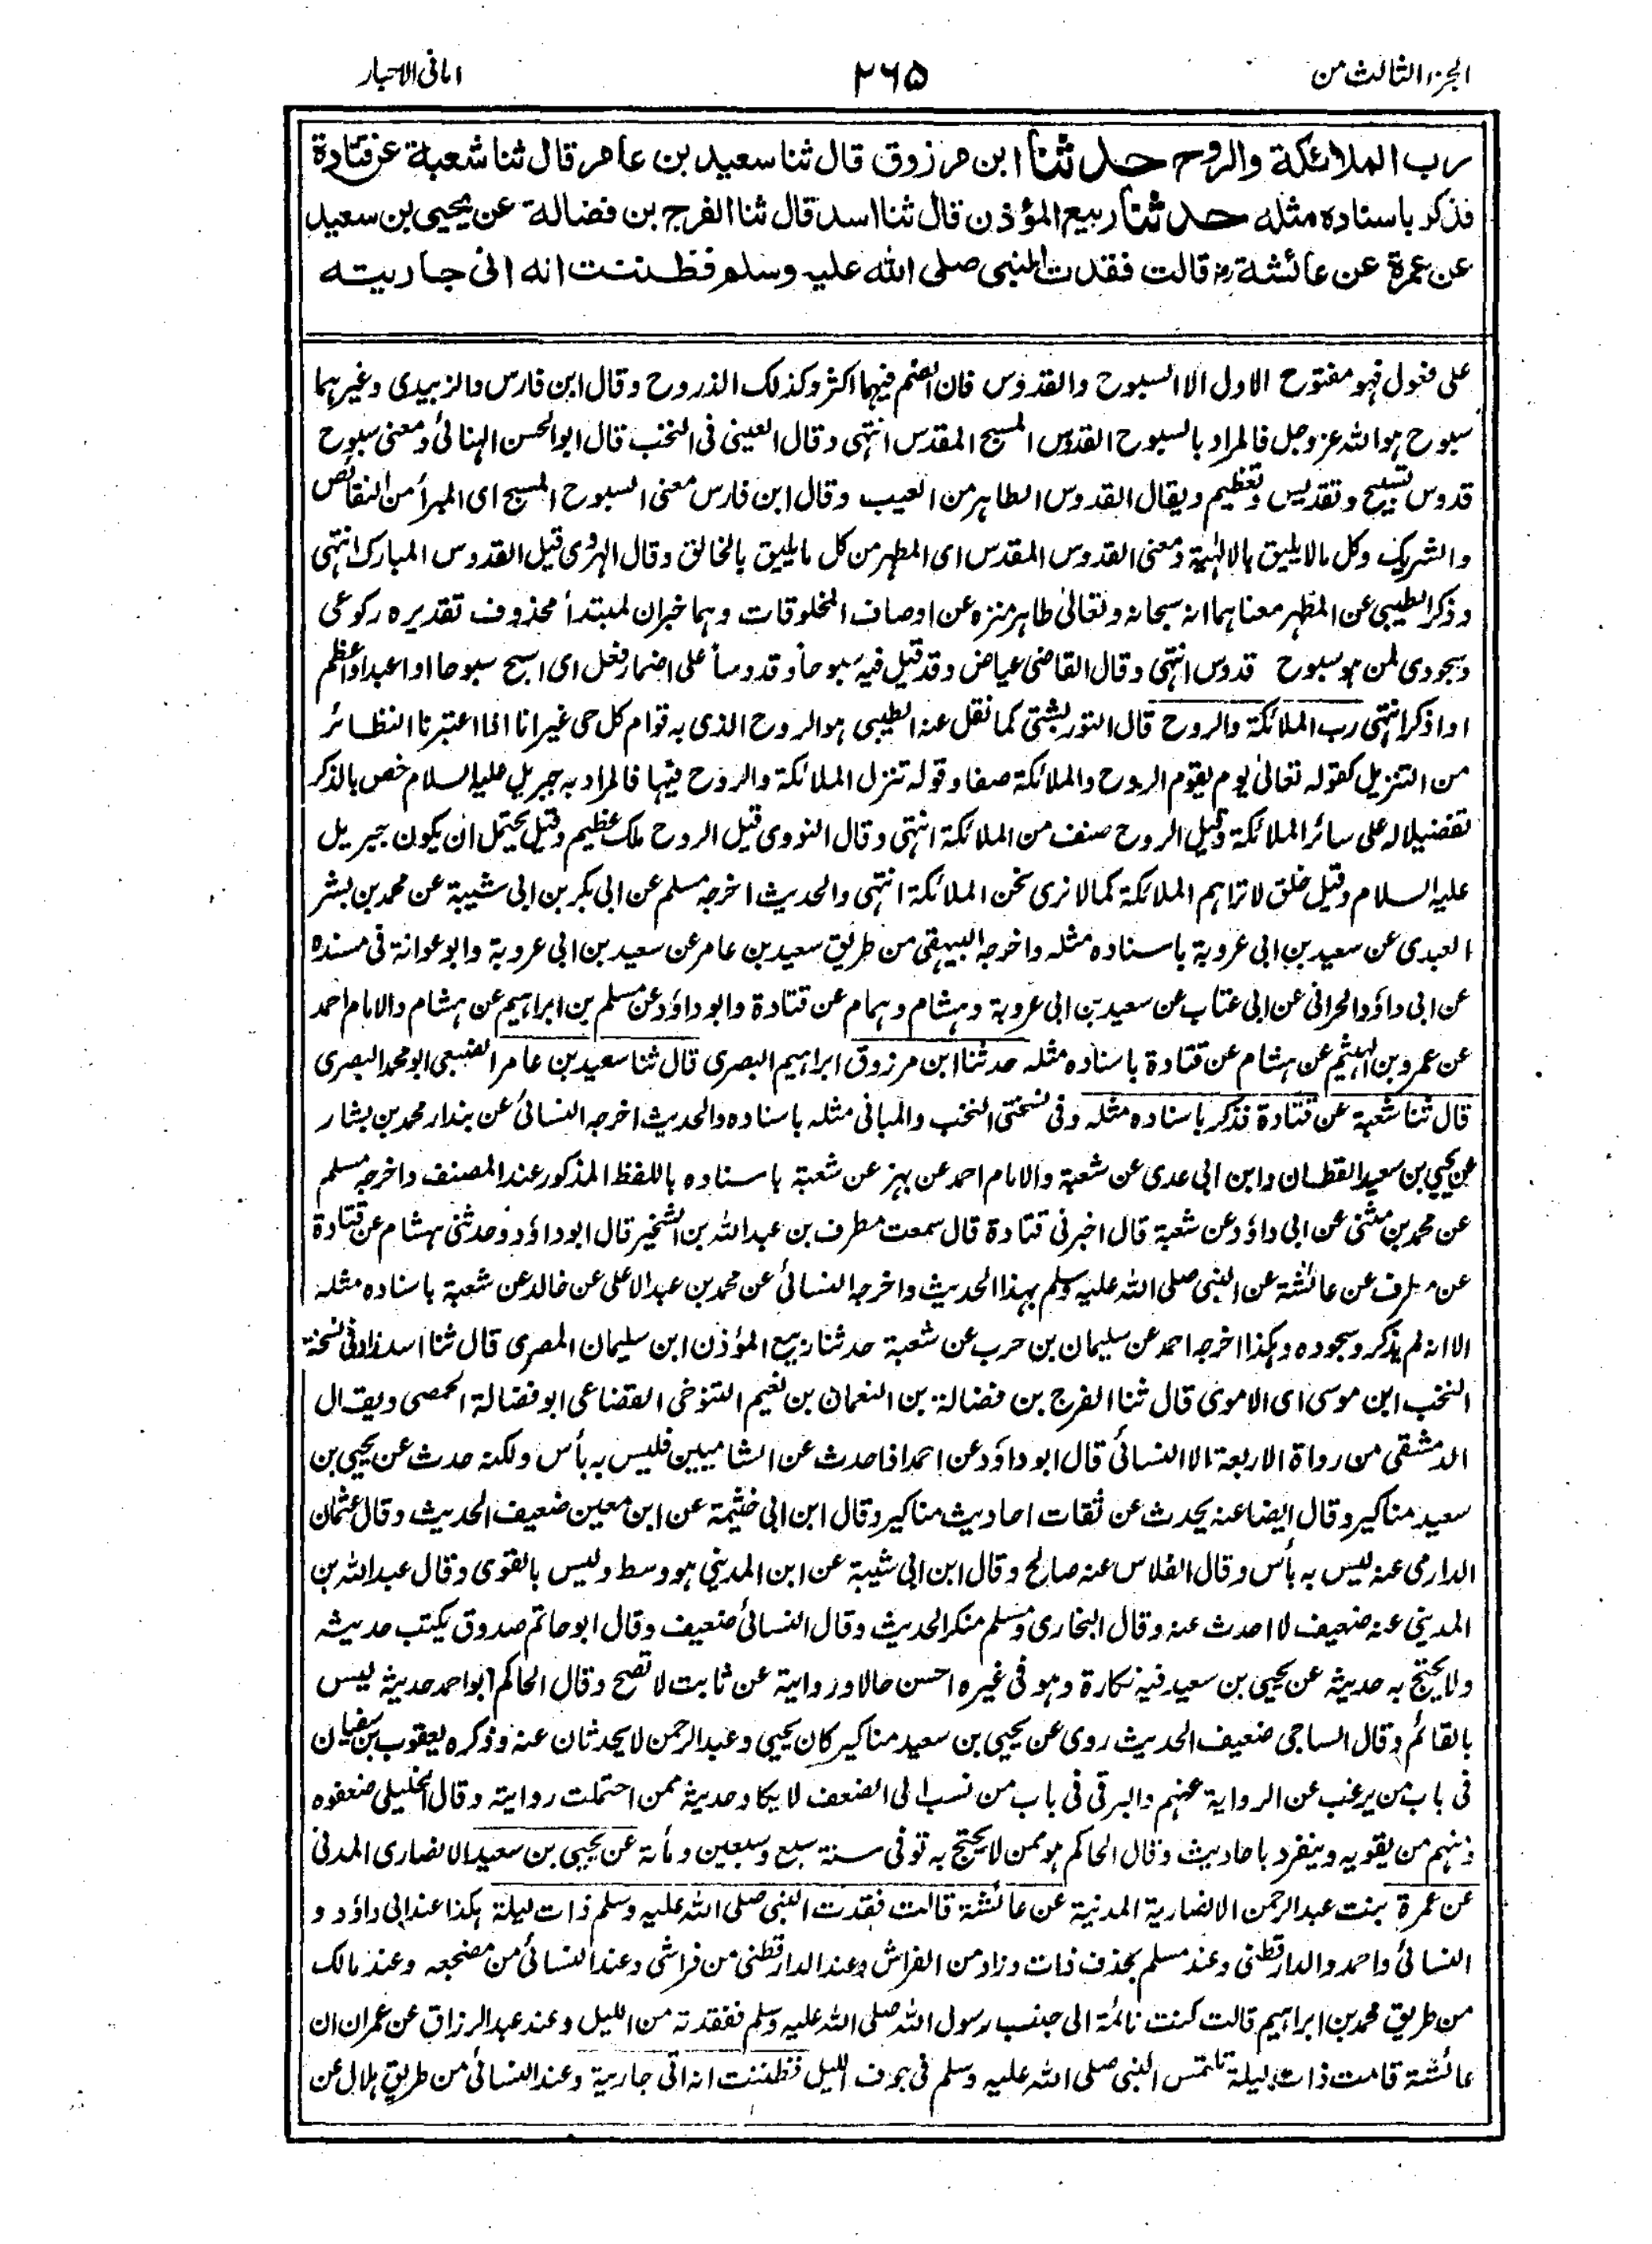 الجزء الثالث من
٢٦٥
امانی الاحبار
رب الملائكة والروح حدثنا ابن مرزوق قال ثنا سعيد بن عامر قال ثنا شعبة عن قتادة
فذكر باسناده مثله حدثنا ربيع المؤذن قال ثنا اسد قال ثنا الفرج بن فضالة عن يحيى بن سعيد
عن عمرة عن عائشة رض قالت فقدت النبي صلى الله عليه وسلم فظننت انه اتى جاريته
على فعول فهو مفتوح الاول الا السبوح والقدوس فان الضم فيهما اكثر وكذلك الذروح وقال ابن فارس والزبيدى وغيرهما
سبوح هو الله عز وجل فالمراد بالسبوح القدوس المسبح المقدس انتهى وقال العينى فى النخب قال ابو الحسن الهنائى ومعنى سبوح
قدوس تسبيح وتقديس وتعظيم ويقال القدوس الطاهر من العيب وقال ابن فارس معنى السبوح المسبح اى المبرأ من النقائص
والشريك وكل ما لا يليق بالالهية ومعنى القدوس المقدس اى المطهر من كل ما يليق بالخالق وقال الهروى قيل القدوس المبارك انتهى
وذكر الطيبى عن المظهر معناهما انه سبحانه وتعالى طاهر منزه عن اوصاف المخلوقات وهما خبران لمبتدأ محذوف تقديره ركوعى
وسجودى لمن هو سبوح قدوس انتهى وقال القاضى عياض وقد قيل فيه سبوحاً وقدوساً على اضمار فعل اى اسبح سبوحا او اعبد او اعظم
او اذكر انتهى رب الملائكة والروح قال التوربشتى كما نقل عنه الطيبى هو الروح الذى به قوام كل حى غير انا اذا اعتبرنا النظائر
من التنزيل كقوله تعالى يوم يقوم الروح والملائكة صفا وقوله تنزل الملائكة والروح فيها فالمراد به جبريل عليه السلام خص بالذكر
تفضيلا له على سائر الملائكة وقيل الروح صنف من الملائكة انتهى وقال النووى قيل الروح ملك عظيم وقيل يحتمل ان يكون جبريل
عليه السلام وقيل خلق لا تراهم الملائكة كما لا نرى نحن الملائكة انتهى والحديث اخرجه مسلم عن ابى بكر بن ابى شيبة عن محمد بن بشر
العبدى عن سعيد بن ابى عروبة باسناده مثله واخرجه البيهقى من طريق سعيد بن عامر عن سعيد بن ابى عروبة وابو عوانة فى مسنده
عن ابى داؤد الحرانى عن ابى عتاب عن سعيد بن ابى عروبة وهشام وهمام عن قتادة وابو داؤد عن مسلم بن ابراهيم عن هشام والامام احمد
عن عمرو بن الهيثم عن هشام عن قتادة باسناده مثله حدثنا ابن مرزوق ابراهيم البصرى قال ثنا سعيد بن عامر الضبعى ابو محمد البصرى
قال ثنا شعبة عن قتادة فذكر باسناده مثله وفى نسختى النخب والمبانى مثله باسناده والحديث اخرجه النسائى عن بندار محمد بن بشار
عن يحيى بن سعيد القطان وابن ابى عدى عن شعبة والامام احمد عن بهز عن شعبة باسناده باللفظ المذكور عند المصنف واخرجه مسلم
عن محمد بن مثنى عن ابى داؤد عن شعبة قال اخبرنى قتادة قال سمعت مطرف بن عبد الله بن الشخير قال ابو داؤد وحدثنى هشام عن قتادة
عن مطرف عن عائشة عن النبى صلى الله عليه وسلم بهذا الحديث واخرجه النسائى عن محمد بن عبد الاعلى عن خالد عن شعبة باسناده مثله
الا انه لم يذكر وسجوده وهكذا اخرجه احمد عن سليمان بن حرب عن شعبة حدثنا ربيع المؤذن ابن سليمان المصرى قال ثنا اسد زاد فى نسخة
النخب ابن موسى اى الاموى قال ثنا الفرج بن فضالة بن النعمان بن نعيم التنوخى القضاعى ابو فضالة الحمصى ويقال
الدمشقى من رواة الاربعة الا النسائى قال ابو داؤد عن احمد اذا حدث عن الشاميين فليس به بأس ولكنه حدث عن يحيى بن
سعيد مناكير وقال ايضا عنه يحدث عن ثقات احاديث مناكير وقال ابن ابى خثيمة عن ابن معين ضعيف الحديث وقال عثمان
الدارمى عنه ليس به بأس وقال الفلاس عنه صالح وقال ابن ابى شيبة عن ابن المدينى هو وسط وليس بالقوى وقال عبد الله بن
المدينى عنه ضعيف لا احدث عنه وقال البخارى ومسلم منكر الحديث وقال النسائى ضعيف وقال ابو حاتم صدوق يكتب حديثه
ولا يحتج به حديثه عن يحيى بن سعيد فيه نكارة وهو فى غيره احسن حالا وروايته عن ثابت لا تصح وقال الحاكم ابو احمد حديثه ليس
بالقائم وقال الساجى ضعيف الحديث روى عن يحيى بن سعيد مناكير كان يحيى وعبد الرحمن لا يحدثان عنه وذكره يعقوب بن سفيان
فى باب من يرغب عن الرواية عنهم والبرقى فى باب من نسب الى الضعف لا يكاد حديثه ممن احتملت روايته وقال الخليلى ضعفوه
ومنهم من يقويه وينفرد باحاديث وقال الحاكم هو ممن لا يحتج به توفى سنة سبع وسبعين ومأته عن يحيى بن سعيد الانصارى المدنى
عن عمرة بنت عبد الرحمن الانصارية المدنية عن عائشة قالت فقدت النبى صلى الله عليه وسلم ذات ليلة هكذا عند ابى داؤد و
النسائى واحمد والدارقطنى وعند مسلم بحذف ذات وزاد من الفراش وعند الدارقطنى من فراشى وعند النسائى من مضجعه وعند مالك
من طريق محمد بن ابراهيم قالت كنت نائمة الى جنب رسول الله صلى الله عليه وسلم ففقدته من الليل وعند عبد الرزاق عن عمران ان
عائشة قامت ذات ليلة تلتمس النبى صلى الله عليه وسلم فى جوف الليل فظننت انه اتى جاريته وعند النسائى من طريق هلال عن